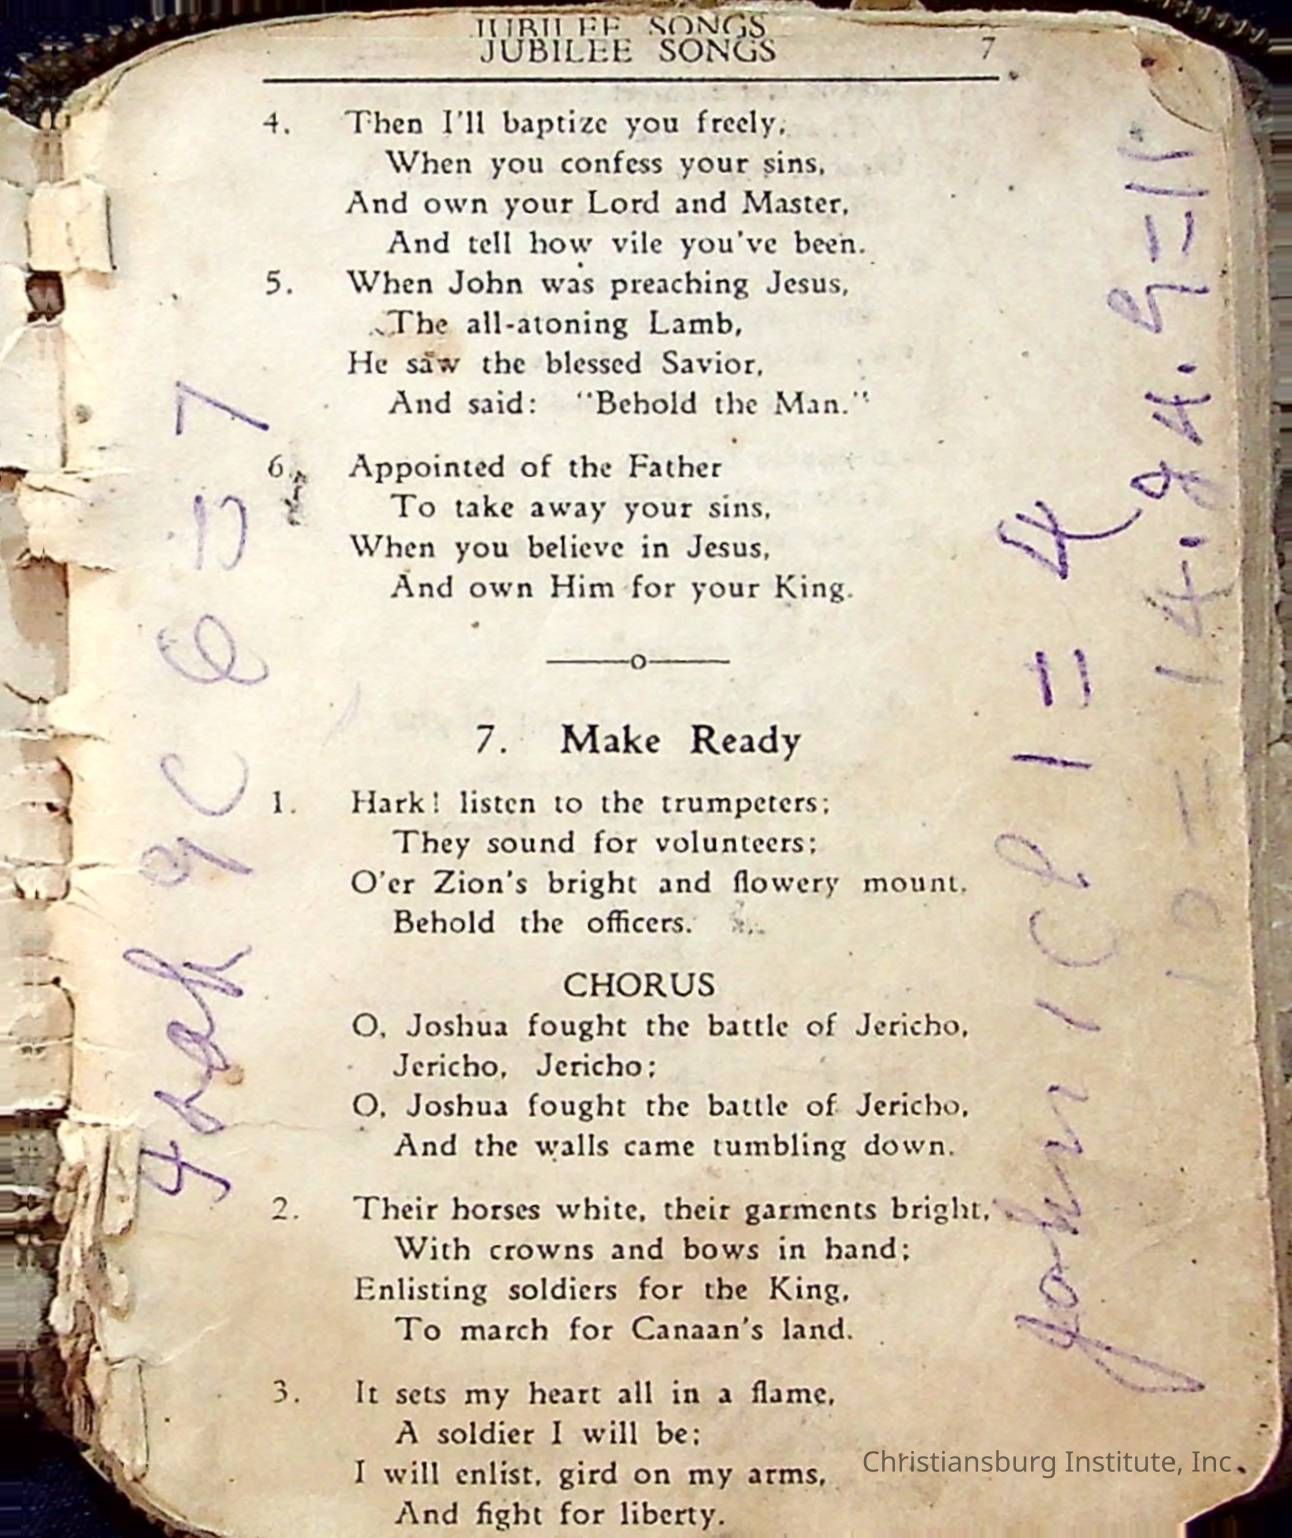 JUBILEE SONGS 7
4. Then I'll baptize you freely,
When you confess your sins,
And own your Lord and Master,
And tell how vile you've been.
5. When John was preaching Jesus,
The all-atoning Lamb,
He saw the blessed Savior,
And said: "Behold the Man."
6. Appointed of the Father
To take away your sins,
When you believe in Jesus,
And own Him for your King.
7. Make Ready
1. Hark! listen to the trumpeters;
They sound for volunteers;
O'er Zion's bright and flowery mount,
Behold the officers.
CHORUS
O, Joshua fought the battle of Jericho,
Jericho, Jericho;
O, Joshua fought the battle of Jericho,
And the walls came tumbling down.
2. Their horses white, their garments bright,
With crowns and bows in hand;
Enlisting soldiers for the King,
To march for Canaan's land.
3. It sets my heart all in a flame,
A soldier I will be;
I will enlist, gird on my arms,
And fight for liberty.
John 1 Cl 1 = 4
Christiansburg Institute, Inc.